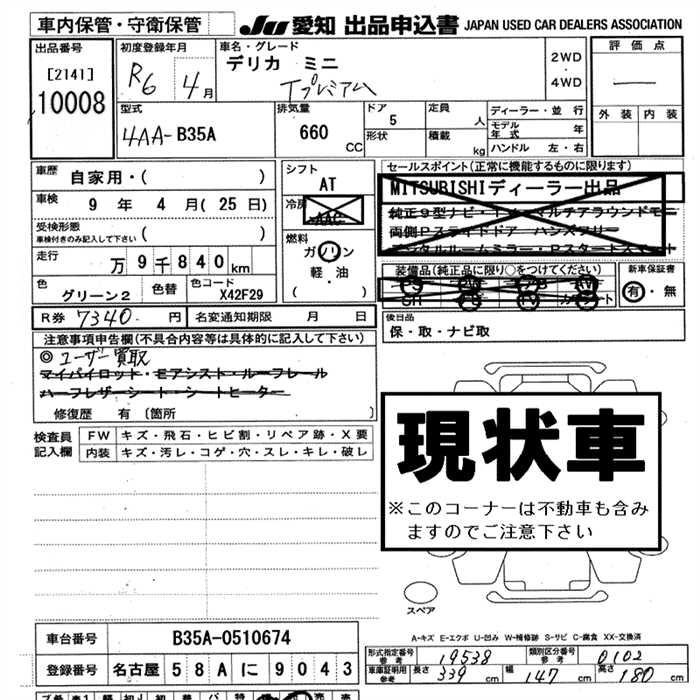 車内保管・守衛保管
JU 愛知 出品申込書 JAPAN USED CAR DEALERS ASSOCIATION
出品番号
[2141]
10008
初度登録年月
R6 4月
車名・グレード
デリカ ミニ
Tプレミアム
2WD
・
4WD
評価点
外装 内装
型式
4AA-B35A
排気量
660 CC
ドア
5
形状
定員 人
積載 kg
ディーラー・並行
モデル年式 年
ハンドル 左・右
車歴
自家用・( )
車検
9年 4月(25日)
受検形態
車検付きのみ記入して下さい ( )
走行
万9千840km
色
グリーン2
色替
色コード
X42F29
シフト
AT
冷房
AAC
燃料
ガソリン
軽・油
( )
セールスポイント(正常に機能するものに限ります)
MITSUBISHIディーラー出品
純正9型ナビ・
マルチアラウンドモニ
両側Pスライドドア ハンズフリー
デジタルルームミラー・Pスタート
装備品(純正品に限り○をつけてください)
新車保証書
有・無
R券 7340.円
名変通知期限 月 日
後日品
保・取・ナビ取
注意事項申告欄(不具合内容等は具体的に記入して下さい)
◎ユーザー買取
マイパイロット・モアシスト・ルーフレール
ハーフレザーシート・シートヒーター
修復歴 有 〔箇所 〕
検査員記入欄
FW キズ・飛石・ヒビ割・リペア跡・X要
内装 キズ・汚レ・コゲ・穴・スレ・キレ・破レ
現状車
※このコーナーは不動車も含みますのでご注意下さい
スペア
A-キズ E-エクボ U-凹み W-補修跡 S-サビ C-腐食 XX-交換済
車台番号 B35A-0510674
登録番号 名古屋 58Aに9043
形式指定番号 参考 19538
類別区分番号 参考 0102
車庫証明用 参考 長さ 339cm 幅 147cm 高さ 180cm